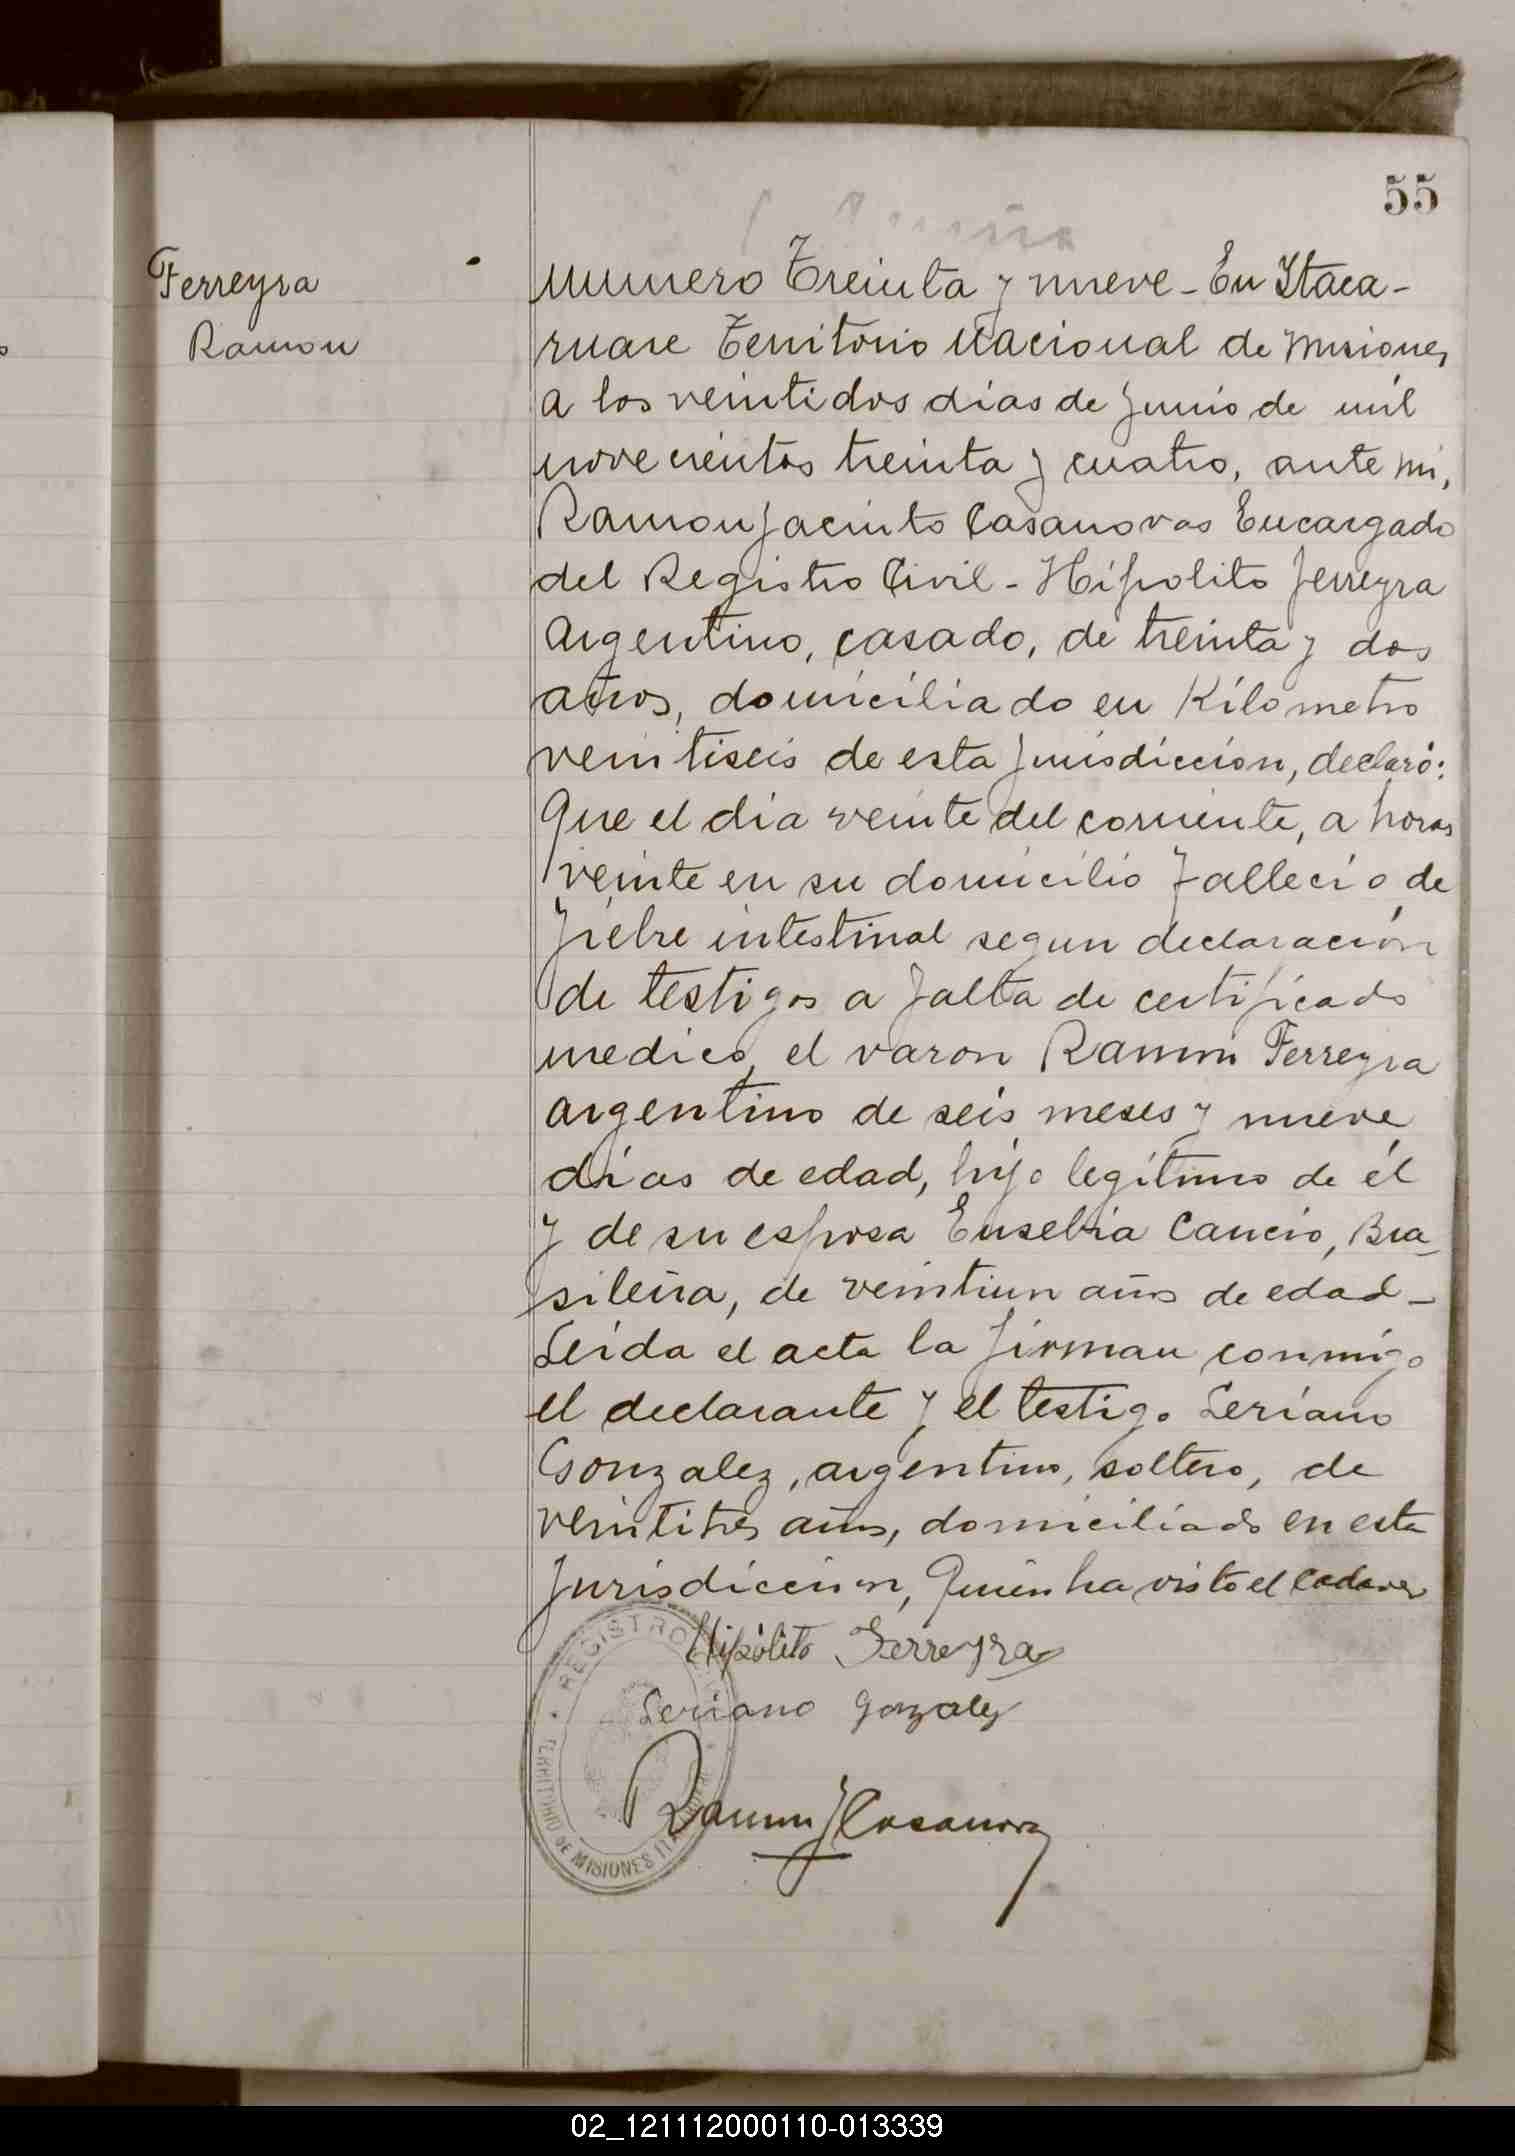 55
Ferreyra
Ramon
Numero Treinta y nueve - En Itaca-
ruare Territorio Nacional de Misiones
a los veintidos dias de Junio de mil
novecientos treinta y cuatro, ante mi,
Ramon Jacinto Casanovas Encargado
del Registro Civil - Hipolito Ferreyra
Argentino, casado, de treinta y dos
años, domiciliado en Kilometro
veintiseis de esta Jurisdiccion, declaró:
Que el dia veinte del corriente, a horas
veinte en su domicilio fallecio de
fiebre intestinal segun declaración
de testigos a falta de certificado
medico, el varon Ramon Ferreyra
argentino de seis meses y nueve
dias de edad, hijo legítimo de él
y de su esposa Eusebia Cancio, Bra-
sileña, de veintiun años de edad -
Leida el acta la firman conmigo
el declarante y el testigo Leriano
Gonzalez, argentino, soltero, de
veintitres años, domiciliado en esta
Jurisdiccion, Quien ha visto el cadaver
Hipólito Ferreyra
Leriano Gonzalez
Ramon J Casanova
REGISTRO
TERRITORIO DE MISIONES
02_121112000110-013339